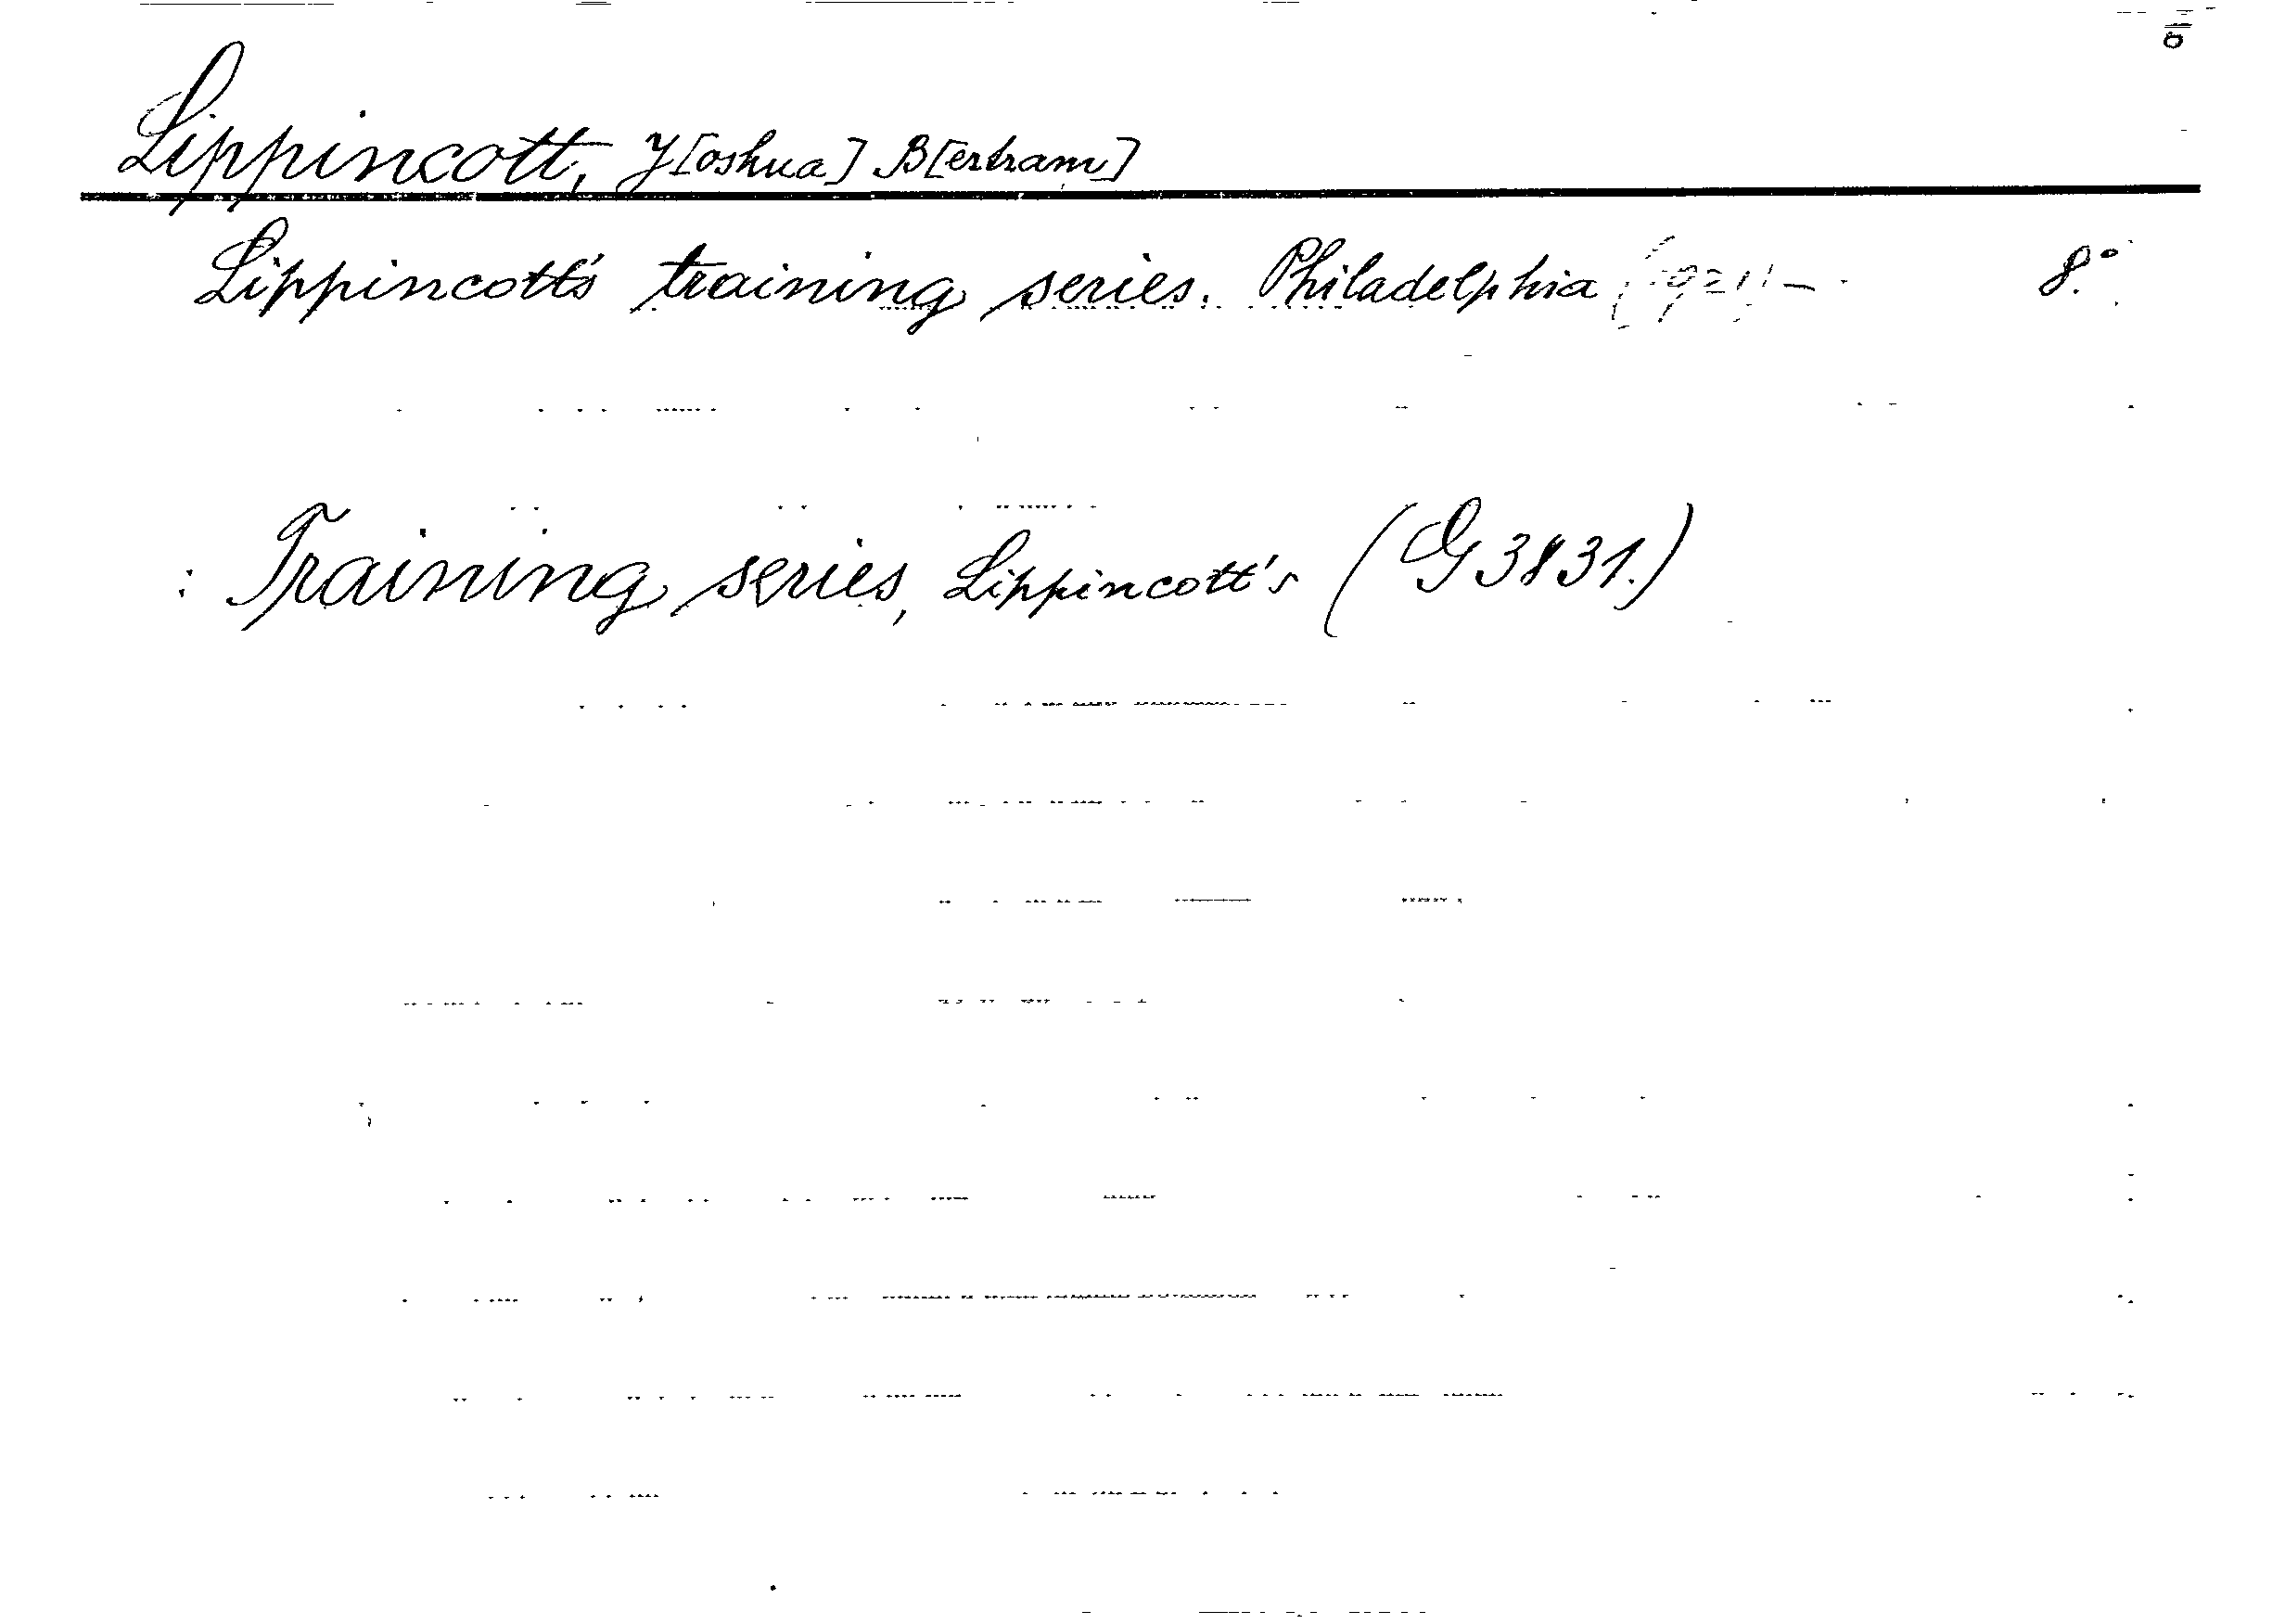 Lippincott, J[oshua] B[ertram]
Lippincott's training series. Philadelphia (1921)- 8.°
: Training series, Lippincott's (G 3831.)